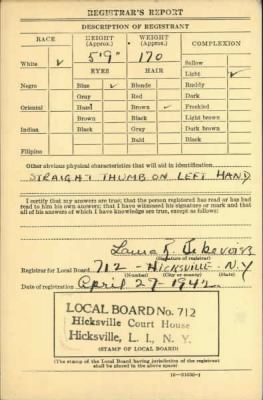 REGISTRAR'S REPORT
DESCRIPTION OF REGISTRANT
RACE HEIGHT (Approx.) WEIGHT (Approx.) COMPLEXION
5'9" 170
White ✓ Sallow
EYES HAIR Light ✓
Negro Blue ✓ Blonde Ruddy
Gray Red Dark
Oriental Hazel Brown ✓ Freckled
Brown Black Light brown
Indian Black Gray Dark brown
Bald Black
Filipino
Other obvious physical characteristics that will aid in identification
STRAIGHT THUMB ON LEFT HAND
I certify that my answers are true; that the person registered has read or has had
read to him his own answers; that I have witnessed his signature or mark and that
all of his answers of which I have knowledge are true, except as follows:
(Signature of registrar)
Registrar for Local Board 712 - HICKSVILLE - N.Y
(Number) (City or county) (State)
Date of registration April 27-1942
LOCAL BOARD No. 712
Hicksville Court House
Hicksville, L. I., N. Y.
(STAMP OF LOCAL BOARD)
(The stamp of the Local Board having jurisdiction of the registrant
shall be placed in the above space)